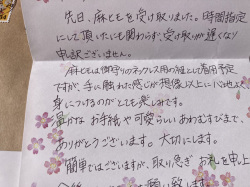 先日、麻ヒモを受け取りました。時間指定
にして頂いたにも関わらず、受け取りが遅くなり
申訳ございません。
麻ヒモは御守りのネックレス用の紐として着用予定
ですが、手に触れた感じが想像以上に心地よく
身につけるのがとても楽しみです。
最かなお手紙や可愛らしいあわむすびまで、
ありがとうございます。大切にします。
簡単ではございますが、取り急ぎお礼を申し上